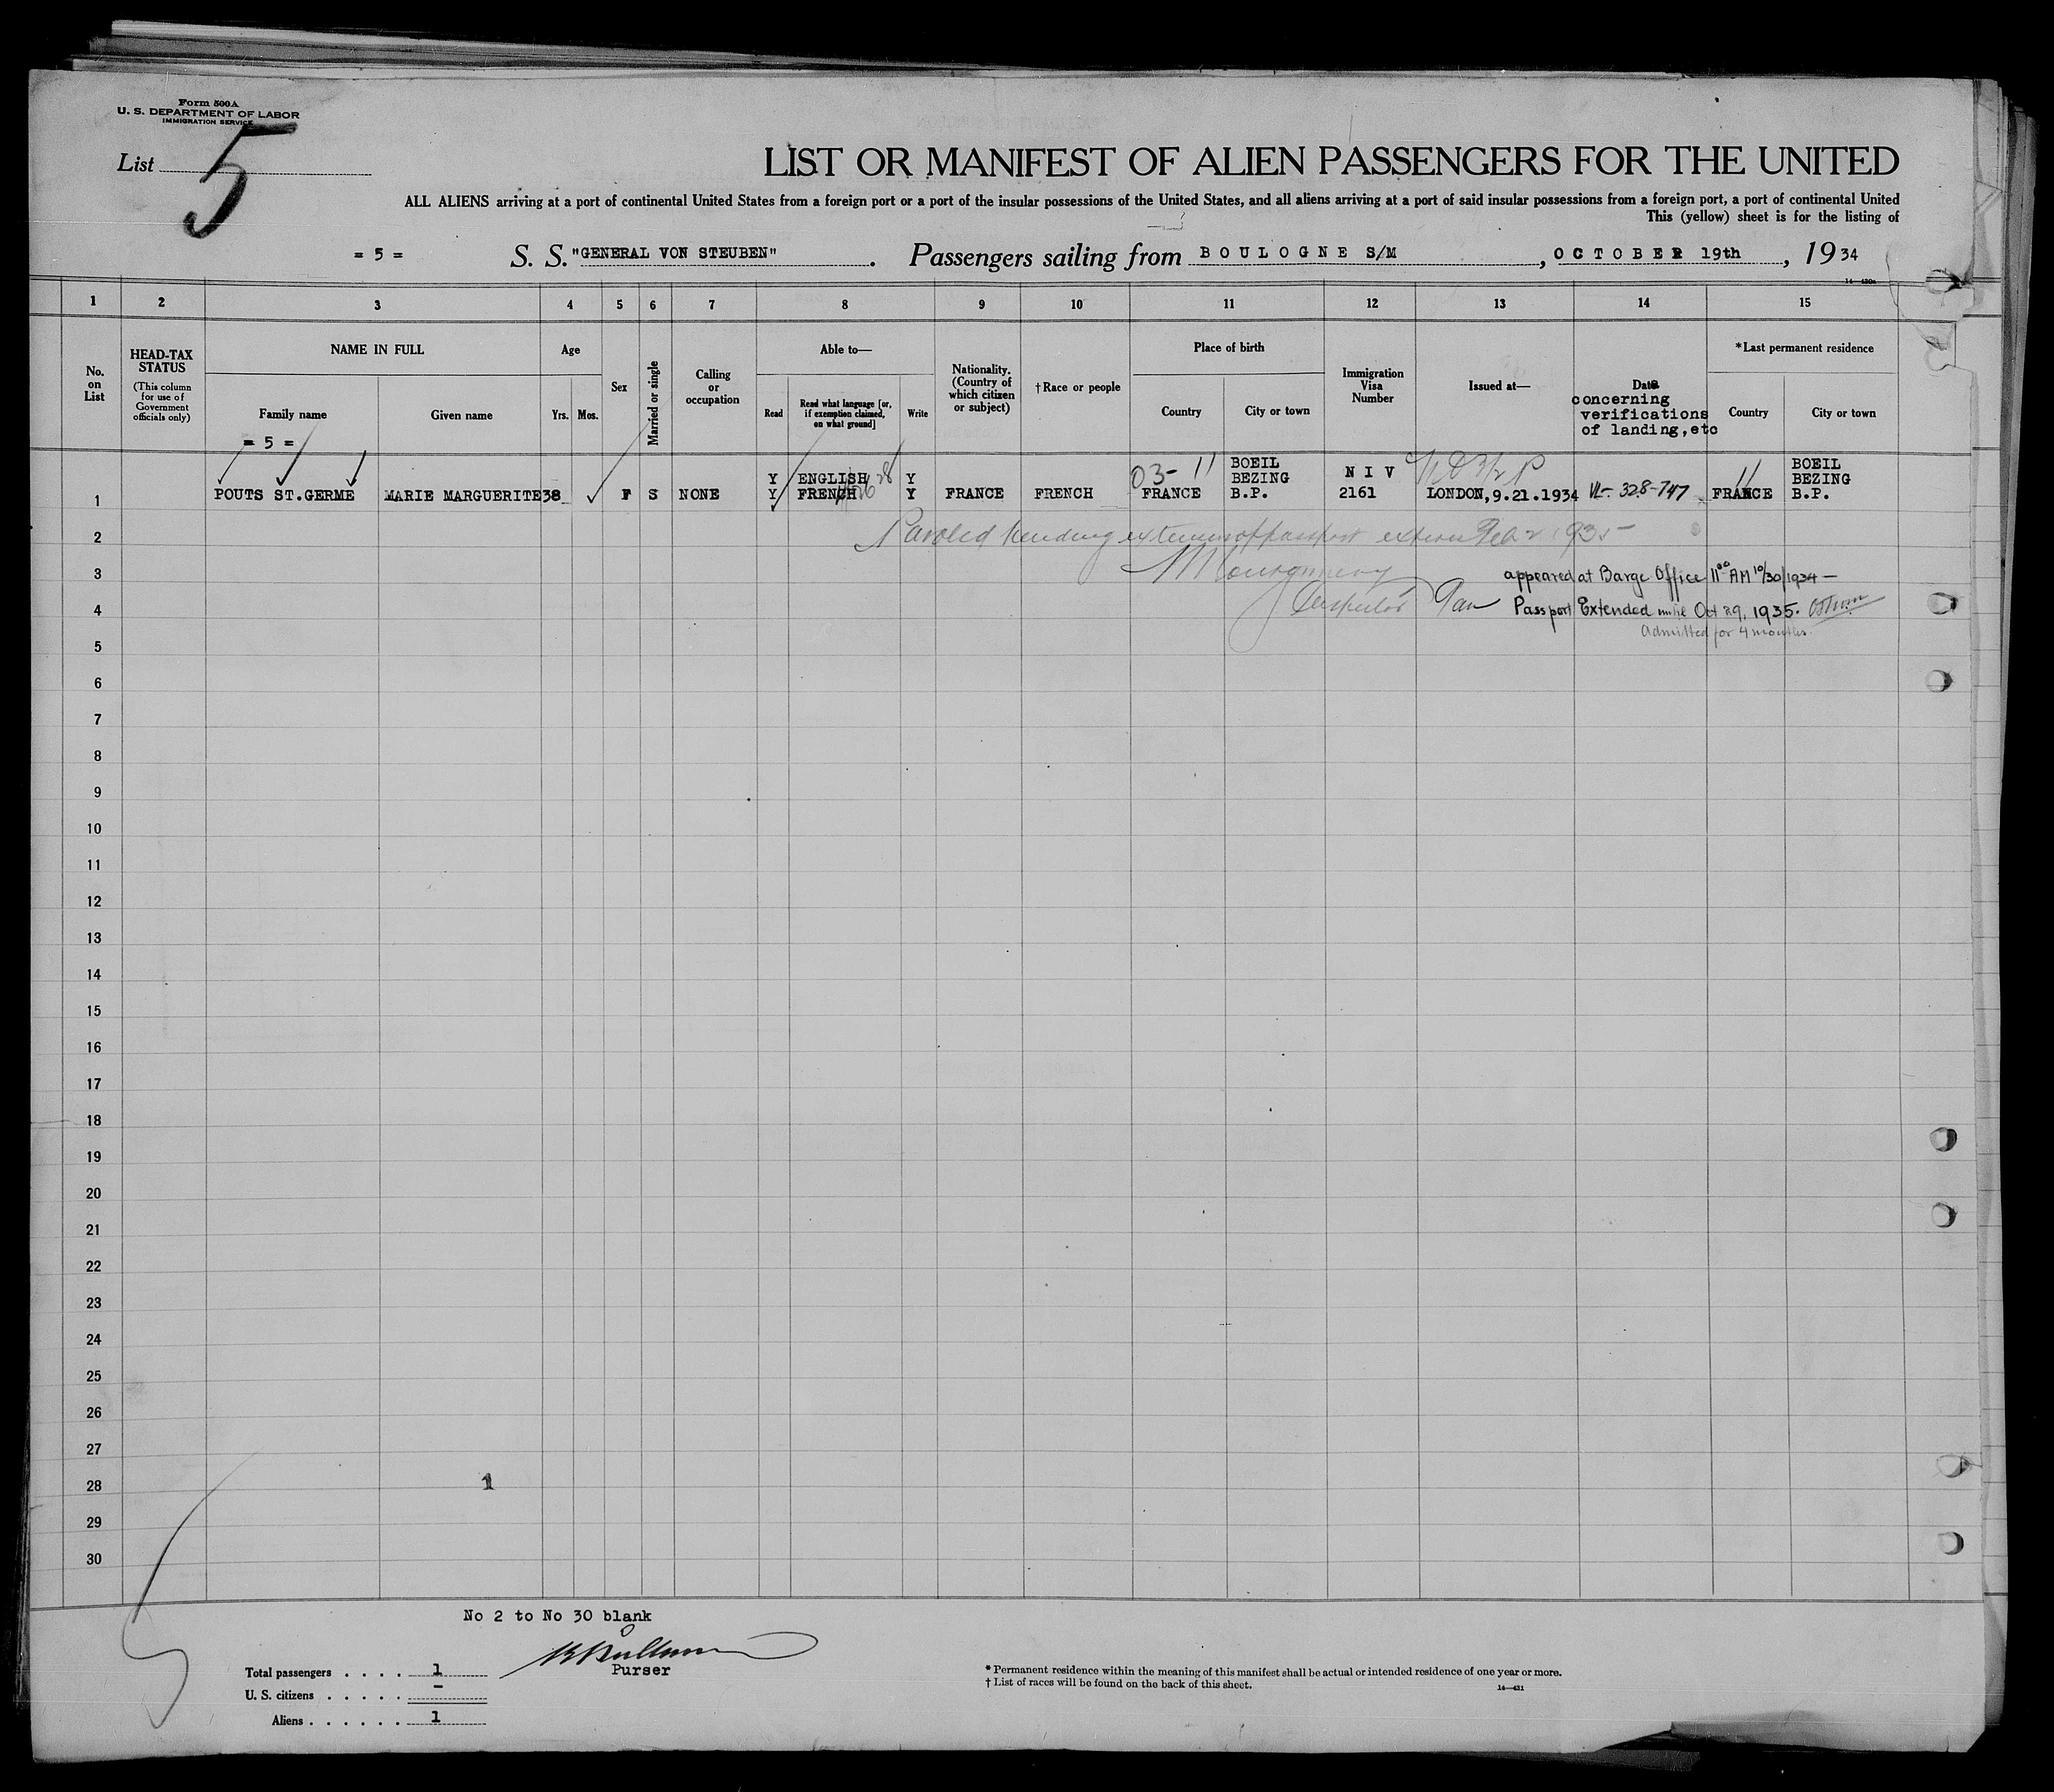 Form 500A
U. S. DEPARTMENT OF LABOR
IMMIGRATION SERVICE
List 5
LIST OR MANIFEST OF ALIEN PASSENGERS FOR THE UNITED
ALL ALIENS arriving at a port of continental United States from a foreign port or a port of the insular possessions of the United States, and all aliens arriving at a port of said insular possessions from a foreign port, a port of continental United
This (yellow) sheet is for the listing of
= 5 = S. S. "GENERAL VON STEUBEN". Passengers sailing from BOULOGNE S/M, OCTOBER 19th, 1934
1 2 3 4 5 6 7 8 9 10 11 12 13 14 15
No. on List
HEAD-TAX STATUS
(This column for use of Government officials only)
NAME IN FULL
Family name
Given name
Age
Yrs.
Mos.
Sex
Married or single
Calling or occupation
Able to—
Read
Read what language [or, if exemption claimed, on what ground]
Write
Nationality. (Country of which citizen or subject)
†Race or people
Place of birth
Country
City or town
Immigration Visa Number
Issued at—
Date concerning verifications of landing, etc
*Last permanent residence
Country
City or town
= 5 =
03- 11 BOEIL 11 BOEIL
Y ENGLISH Y BEZING N I V BEZING
1 POUTS ST.GERME MARIE MARGUERITE 38 F S NONE Y FRENCH Y FRANCE FRENCH FRANCE B.P. 2161 LONDON,9.21.1934 VL- 328-747 FRANCE B.P.
2 Paroled pending extension of passport Feb 2 1935
3 Montgomery appeared at Barge Office 11 00 AM 10/30/1934 —
4 Inspector Passport Extended until Oct 29, 1935.
Admitted for 4 months.
5
6
7
8
9
10
11
12
13
14
15
16
17
18
19
20
21
22
23
24
25
26
27
28 1
29
30
No 2 to No 30 blank
Purser
Total passengers . . . . 1
U. S. citizens . . . . . -
Aliens . . . . . . 1
* Permanent residence within the meaning of this manifest shall be actual or intended residence of one year or more.
† List of races will be found on the back of this sheet.
14—431